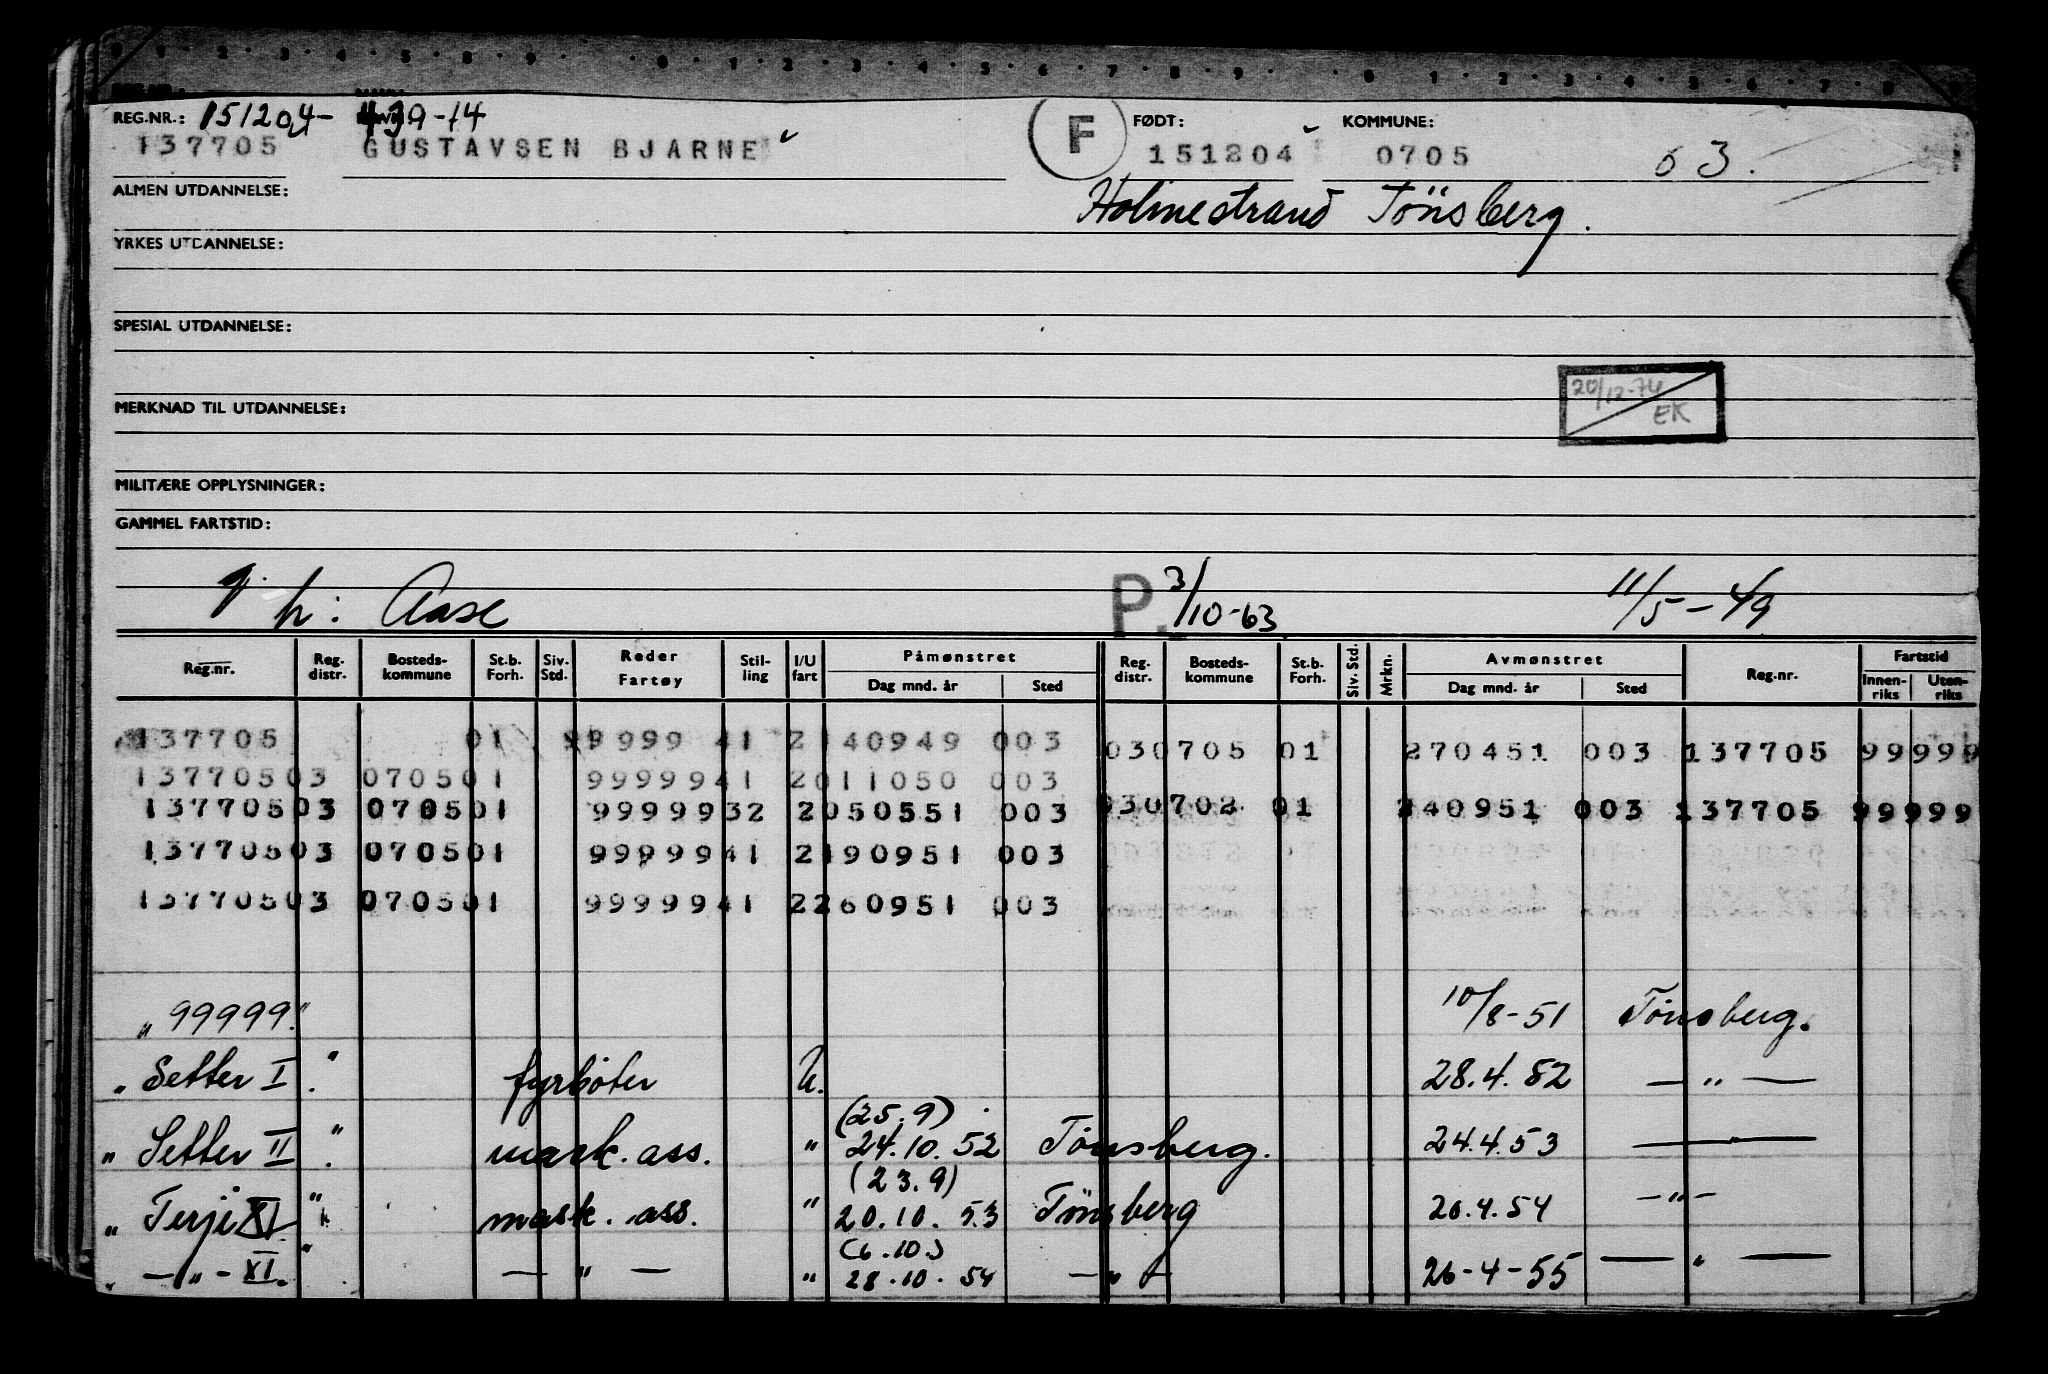 REG.NR.: 151204- 439-14 F FØDT: KOMMUNE:
137705 GUSTAVSEN BJARNE 151204 0705 63.
ALMEN UTDANNELSE: Holmestrand Tönsberg.
YRKES UTDANNELSE:
SPESIAL UTDANNELSE:
20/12-74
MERKNAD TIL UTDANNELSE: EK
MILITÆRE OPPLYSNINGER:
GAMMEL FARTSTID:
h: Aase P. 3/10-63 11/5-49
Reg.nr. Reg. distr. Bosteds-kommune St.b. Forh. Siv. Std. Reder Fartøy Stil-ling I/U fart Påmønstret Dag mnd. år Sted Reg. distr. Bosteds-kommune St.b. Forh. Siv. Std. Mrkn. Avmønstret Dag mnd. år Sted Reg.nr. Fartstid Innen-riks Uten-riks
137705 01 99999 41 2 140949 003 030705 01 270451 003 137705 99999
137705 03 0705 01 99999 41 2 011050 003
137705 03 0705 01 99999 32 2 050551 003 030702 01 240951 003 137705 99999
137705 03 0705 01 99999 41 2 190951 003
137705 03 0705 01 99999 41 2 260951 003
„ 99999." 10/8-51 Tönsberg.
„ Setter I." fyrböter U. 28.4.52 — " —
(25.9)
„ Setter II." mask. ass. " 24.10.52 Tönsberg. 24.4.53 ——
(23.9)
„ Terje XI " mask. ass. " 20.10.53 Tönsberg 20.4.54 — " —
(6.10.)
„ — " — XI. " — " — " 28.10.54 — " — 26-4-55 — " —